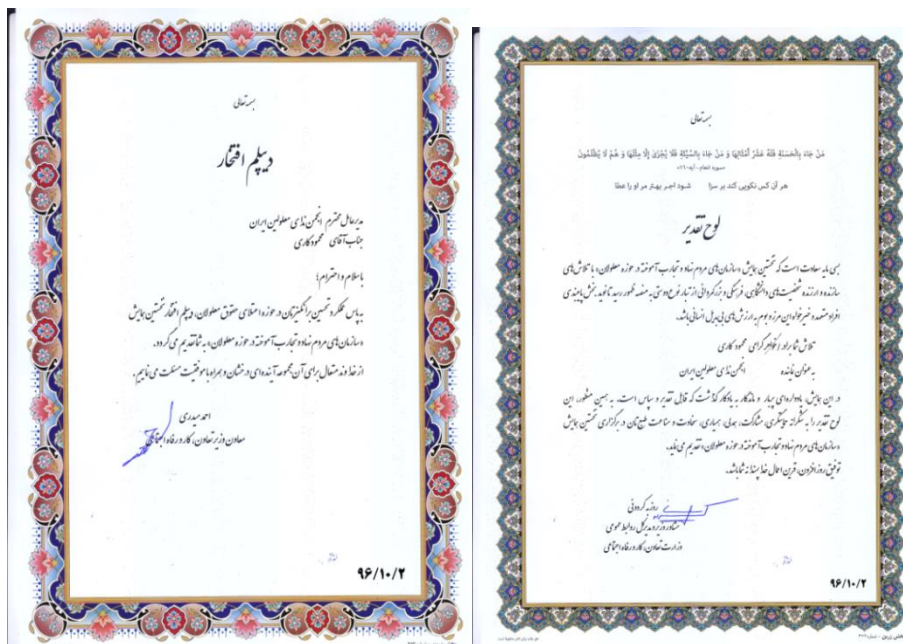 بسمه تعالی
دیپلم افتخار
مدیرعامل محترم انجمن ندای معلولین ایران
جناب آقای محمود کاری
باسلام و احترام؛
به پاس عملکرد تحسین برانگیزتان در حوزه اعتلای حقوق معلولان، دیپلم افتخار نخستین همایش
«سازمان‌های مردم نهاد و تجارب آموخته در حوزه معلولان» به شما تقدیم می گردد.
از خداوند متعال برای آن مجموعه آینده‌ای درخشان و همراه با موفقیت مسئلت می نماییم.
احمد میدری
معاون وزیر تعاون، کار و رفاه اجتماعی
۹۶/۱۰/۲
بسمه تعالی
مَنْ جَاءَ بِالْحَسَنَةِ فَلَهُ عَشْرُ أَمْثَالِهَا وَ مَنْ جَاءَ بِالسَّيِّئَةِ فَلَا يُجْزَىٰ إِلَّا مِثْلَهَا وَ هُمْ لَا يُظْلَمُونَ
هر آن کس نکویی کند بر سزا شود اجر بهتر مر او را عطا
لوح تقدیر
بسی مایه سعادت است که نخستین همایش «سازمان‌های مردم نهاد و تجارب آموخته در حوزه معلولان» با تلاش‌های
سازنده و ارزنده شخصیت‌های دانشگاهی، فرهنگی و بزرگمردانی از تبار نوع دوستی به منصه ظهور رسید تا نوید بخش پایبندی
افراد متعهد و خیرخواه این مرز و بوم به ارزش‌های بی بدیل انسانی باشد.
تلاش شما برادر/خواهر گرامی محمود کاری
به عنوان نماینده انجمن ندای معلولین ایران
در این همایش، یادواره‌ای پربار و ماندگار به یادگار گذاشت که قابل تقدیر و سپاس است. به همین منظور، این
لوح تقدیر را به شکرانه مشارکت، همدلی، همیاری، سخاوت و مناعت طبع‌تان در برگزاری نخستین همایش
«سازمان‌های مردم نهاد و تجارب آموخته در حوزه معلولان» تقدیم می نماید.
توفیق روزافزون، قرین اعمال خداپسندانه شما باشد.
روزبه کردونی
مشاور وزیر و مدیرکل روابط عمومی
وزارت تعاون، کار و رفاه اجتماعی
۹۶/۱۰/۲